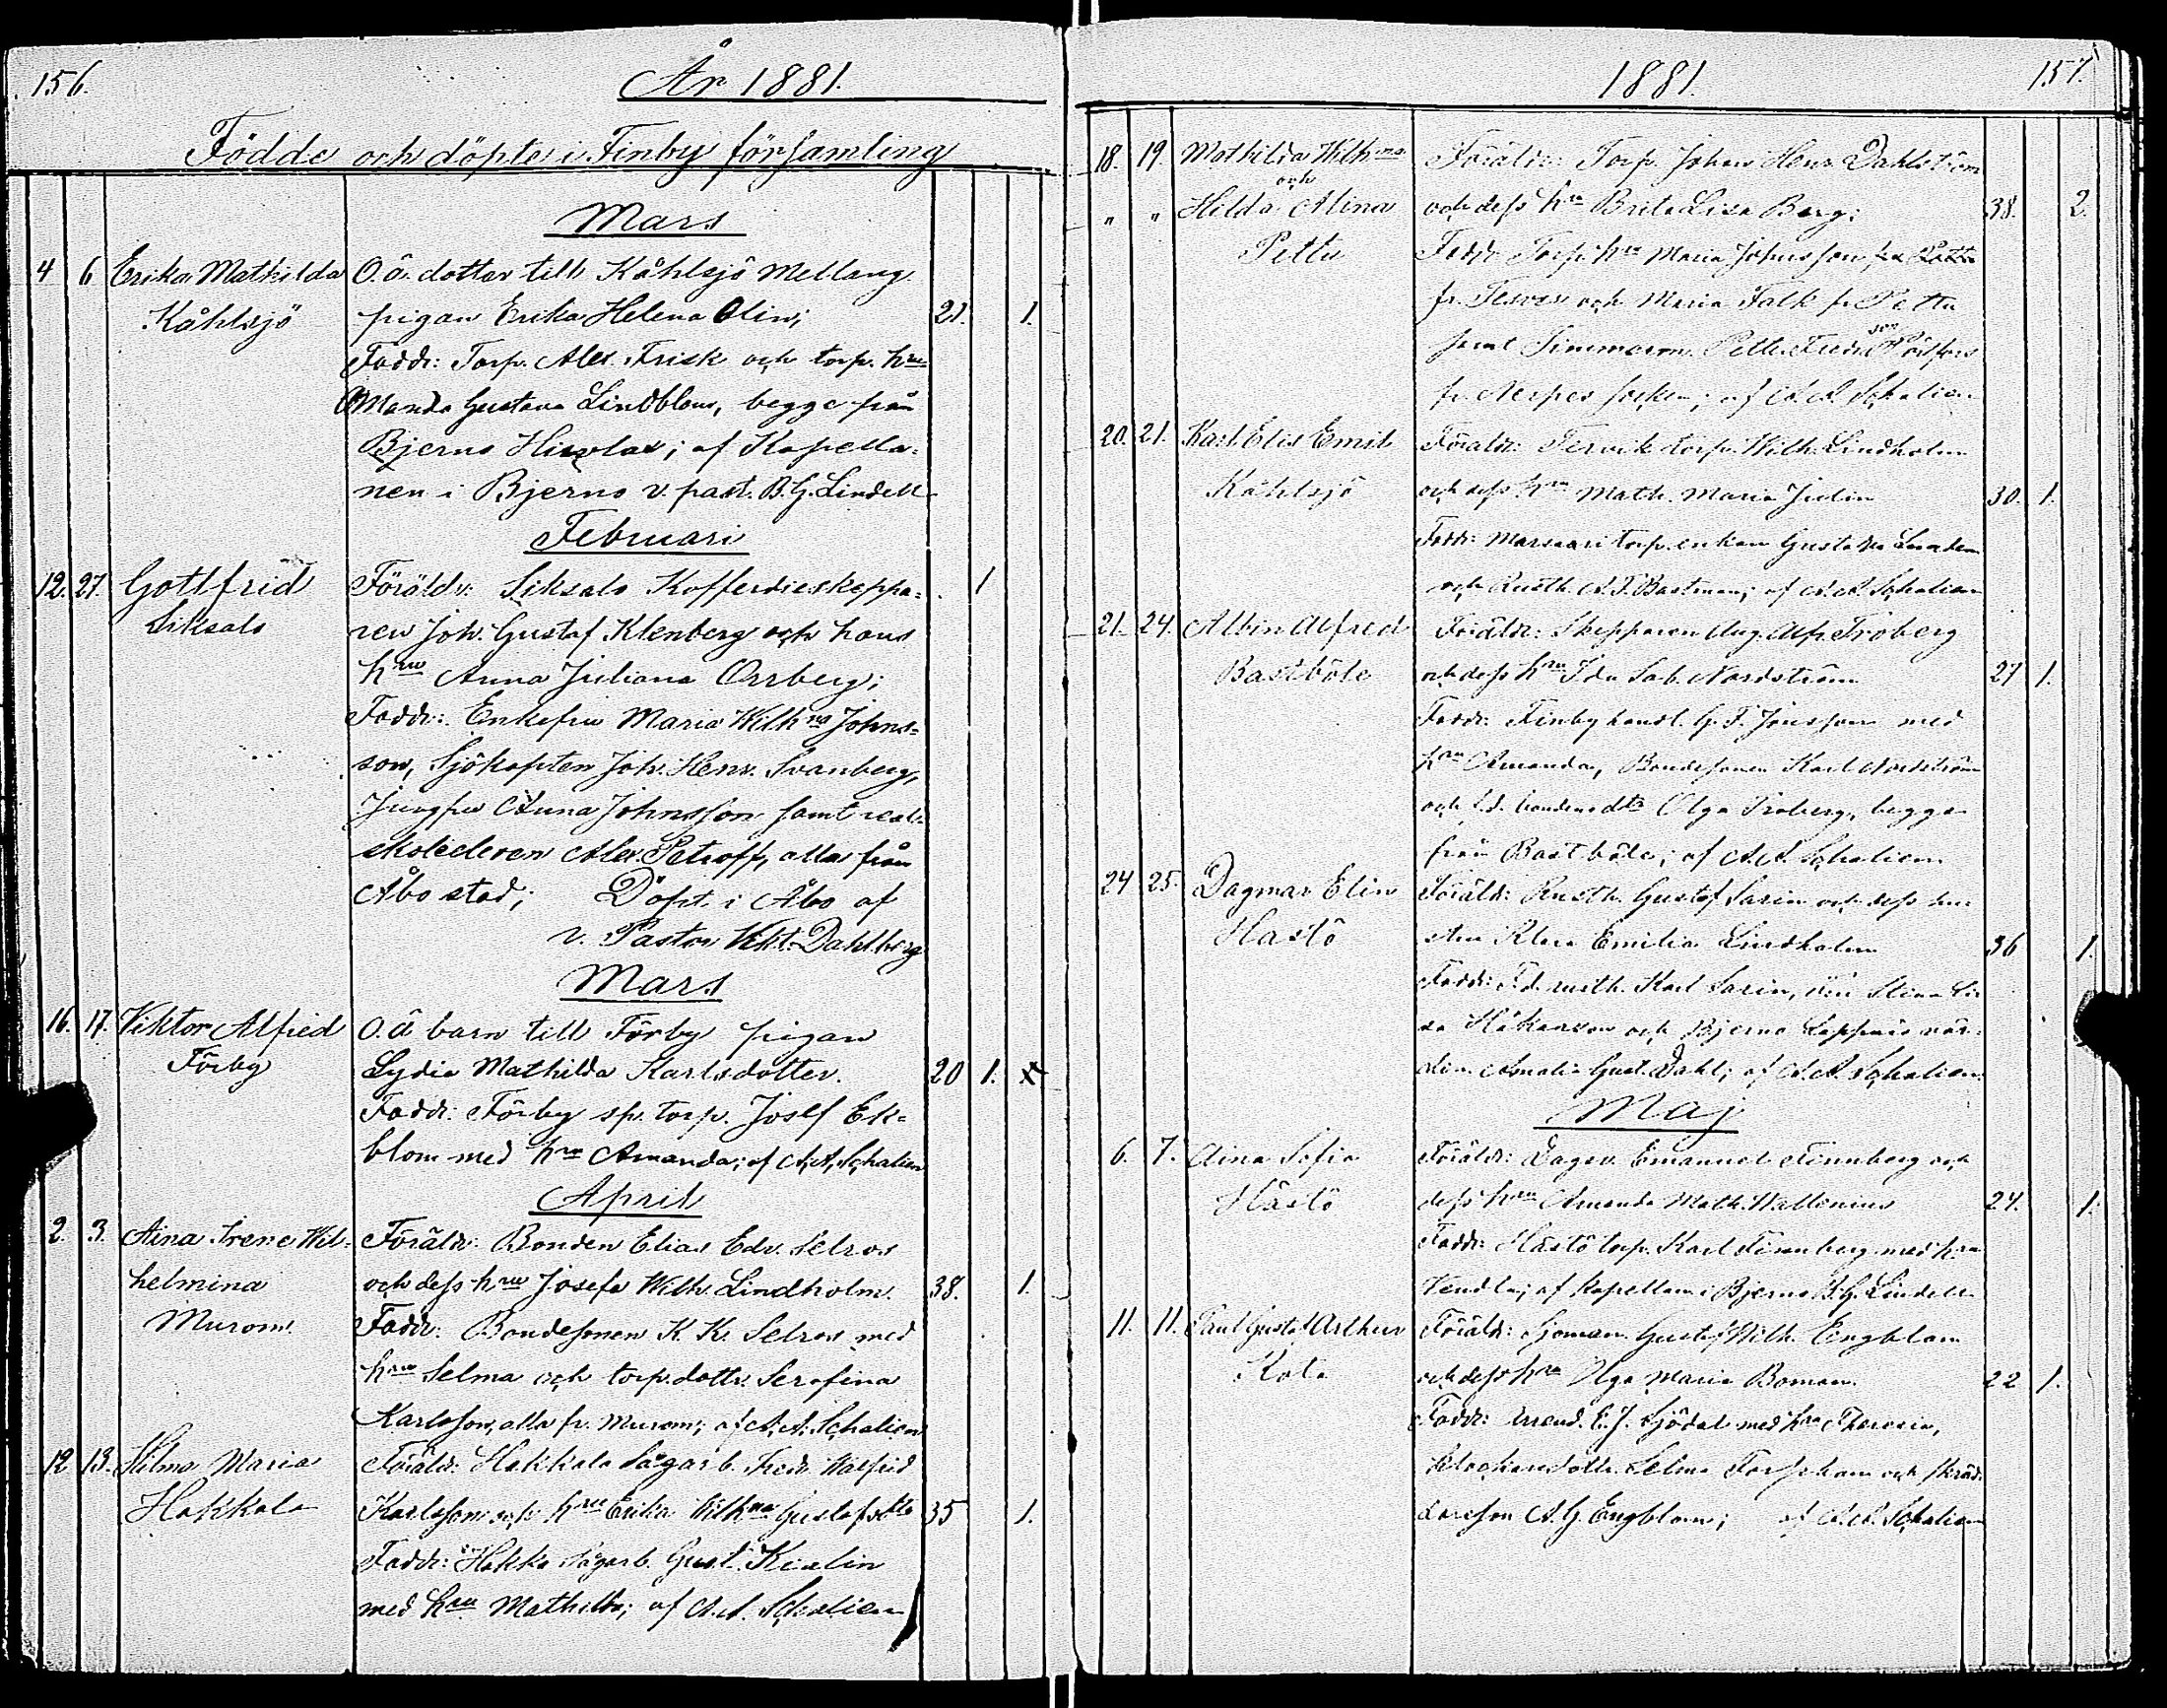 156.
År 1881.
Födde och döpte i Finby församling
Mars
4 6 Erika Mathilda O.ä. dotter till Kåhlsjö Mellang.
Kåhlsjö pigan Erika Helena Olin; 21. 1.
Faddr: Torp. Alex. Frisk och torp. hru
Manda Gustava Lindblom, begge från
Bjerno ; af Kapella-
nen i Bjerno v. past. B.G. Lindell
Februari
12. 27. Gottfrid Föräldr: Siksalo Kofferdieskeppa- 1
Siksalo ren Joh. Gustaf Klenberg och hans
hru Anna Juliana Orrberg;
Faddr: Enkefru Maria Wilhna Johns-
son, Sjökapten Joh. Henr. Svanberg,
Jungfru Anna Johnsson samt real-
skoleeleven Alex. Petroff, alla från
Åbo stad; Döpt i Åbo af
v. Pastor Vikt. Dahlberg
Mars
16. 17. Viktor Alfred O.ä barn till Förby pigan
Förby Lydia Mathilda Karlsdotter. 20 1.
Faddr: Förby sp. torp. Josef Ek-
blom med hru Amanda; af A.A. Schalien
April
2. 3. Aina Irene Wil- Föräldr: Bonden Elias Edv. Selros
helmina och dess hru Josefa Wilh. Lindholm. 38. 1.
Murom. Faddr: Bondesonen K. K. Selros med
hru Selma och torp.dottr. Serafina
Karlsson, alla fr. Murom; af A.A. Schalien
12 13. Hilma Maria Föräldr: Hakkala Sågarb. Fredr Walfrid
Hakkala Karlsson och hru Erika Wilhna Gustafsdtr 35 1.
Faddr: Hakka Sågarb. Gust. Kialin
med hru Mathilda; af A.A. Schalien
1881.
157.
18. 19. Mathilda Wilhna Föräldr: Torp. Johan Henr. Dahlström
och
" " Hilda Alina och dess hru Brita Lisa Berg; 38. 2.
Pettu Faddr: Torp. hru Maria Johnsson
fr. och Maria Falk fr. Pettu
samt Timmerm. Fredr.
fr. Nerpes socken; af A.A. Schalien
20. 21. Karl Elis Emil Föräldr: torp. Wilh. Lindholm
Kåhlsjö och dess hru Math. Maria Julin 30. 1.
Faddr: torp. enkan Gustava
och Rusth. A.F. Bastman; af A.A. Schalien
21. 24. Albin Alfred Föräldr: Skepparen Aug. Alfr. Fröberg
Bastböle och dess hru Ida Sab. Nordström 27 1.
Faddr: Finby handl. G. F. Jonsson med
hru Amanda, Bondesonen Karl Nordström
och f.d. bondens dtr Olga Fröberg, begge
från Bastböle; af A.A. Schalien
24 25. Dagmar Elin Föräldr: Rusth. Gustaf Sarin och dess hu-
Hästö stru Klara Emilia Lindholm 36 1.
Faddr: F.d. rusth. Karl Sarin, Stina
Håkansson och Bjerno
Amalia Gust. Dahl; af A.A. Schalien.
Maj
6. 7. Aina Sofia Föräldr: Emanuel Finnberg och
Hästö dess hru Amanda Math. Wallenius 24. 1.
Faddr: Hästö torp. Karl Finnberg med hru
Vendla; af kapellan i Bjerno B.G. Lindell
11. 11. Paul Gustaf Arthur Föräldr: Sjöman Gustaf Wilh. Engblom
och dess hru Olga Maria Boman. 22 1.
Faddr: Arrend. E. J. Sjödal med hru Theresia,
Klockaredottr. Selma och skräd-
dareson A.G. Engblom; af A.A. Schalien